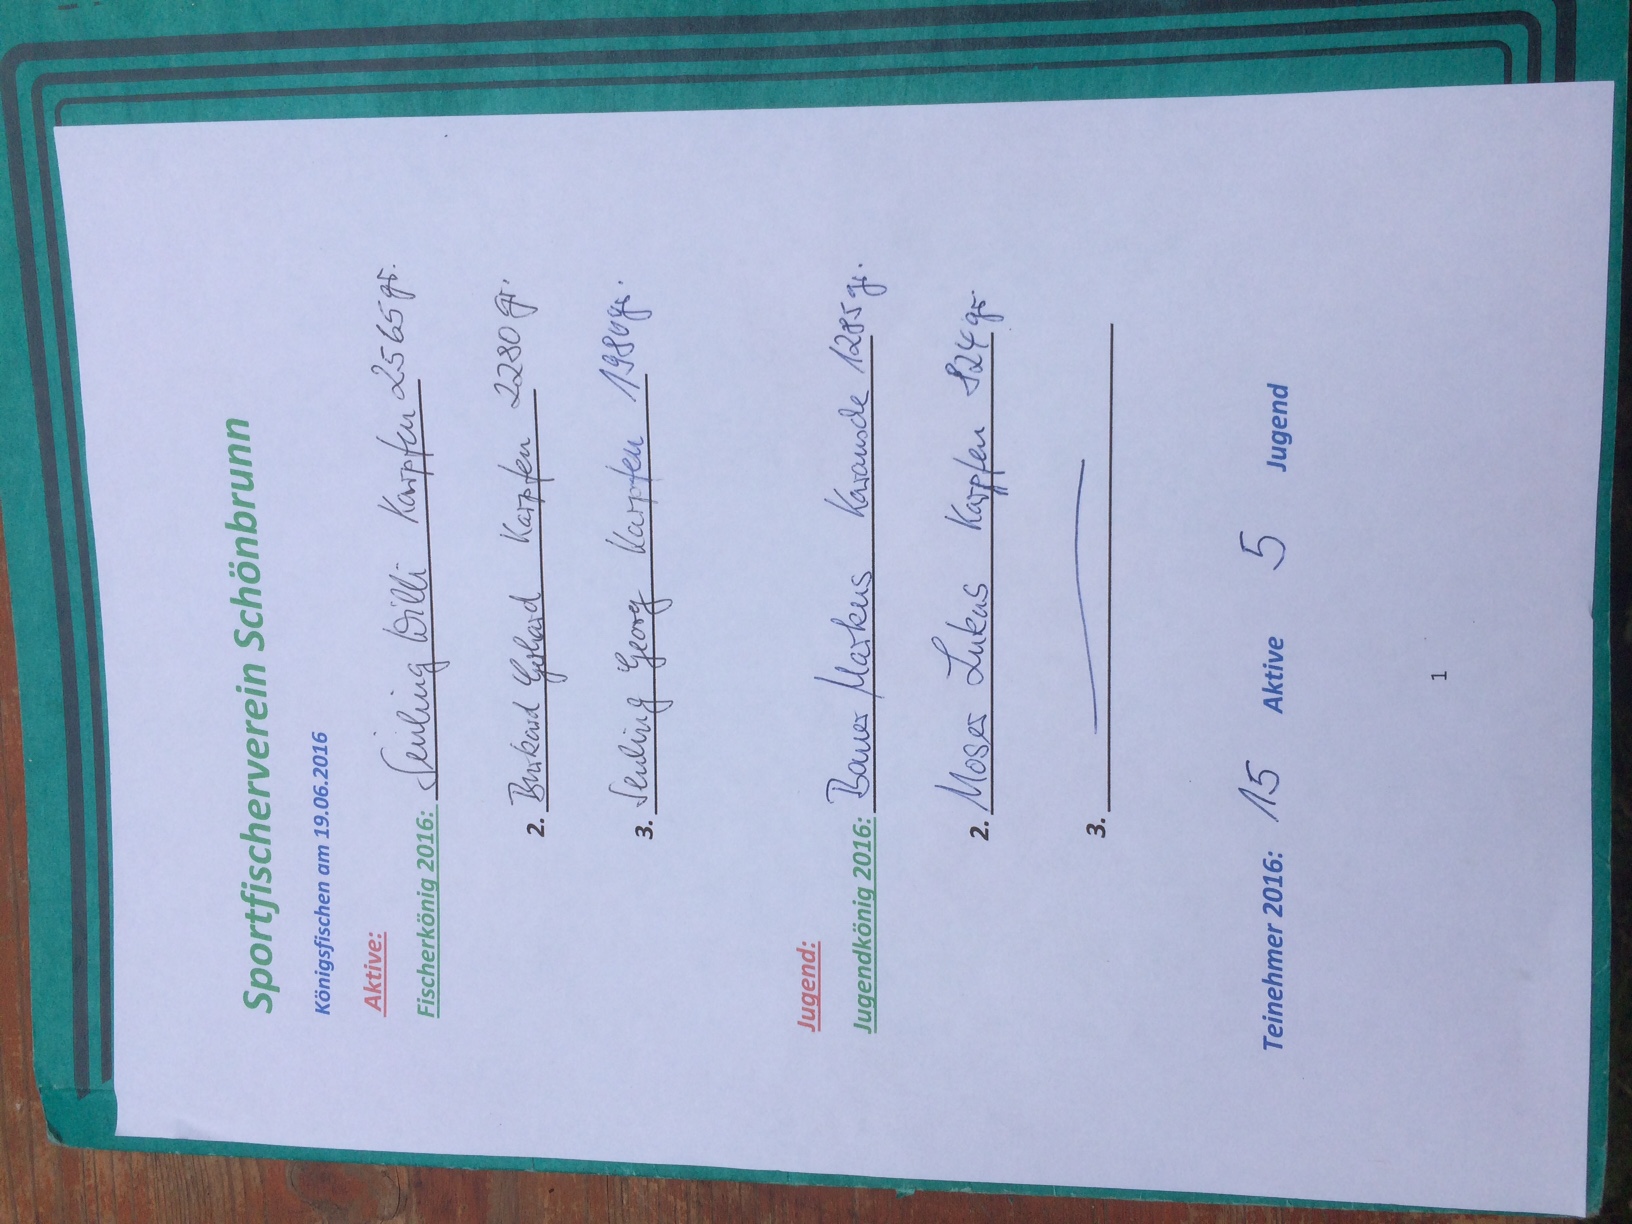 Sportfischerverein Schönbrunn
Königsfischen am 19.06.2016
Aktive:
Fischerkönig 2016: Seuling Willi Karpfen 2565 gr.
2. Burkard Gerhard Karpfen 2280 gr.
3. Seuling Georg Karpfen 1980 gr.
Jugend:
Jugendkönig 2016: Bauer Markus Karausche 1285 gr.
2. Moser Lukas Karpfen 824 gr.
3.
Teinehmer 2016: 15 Aktive 5 Jugend
1